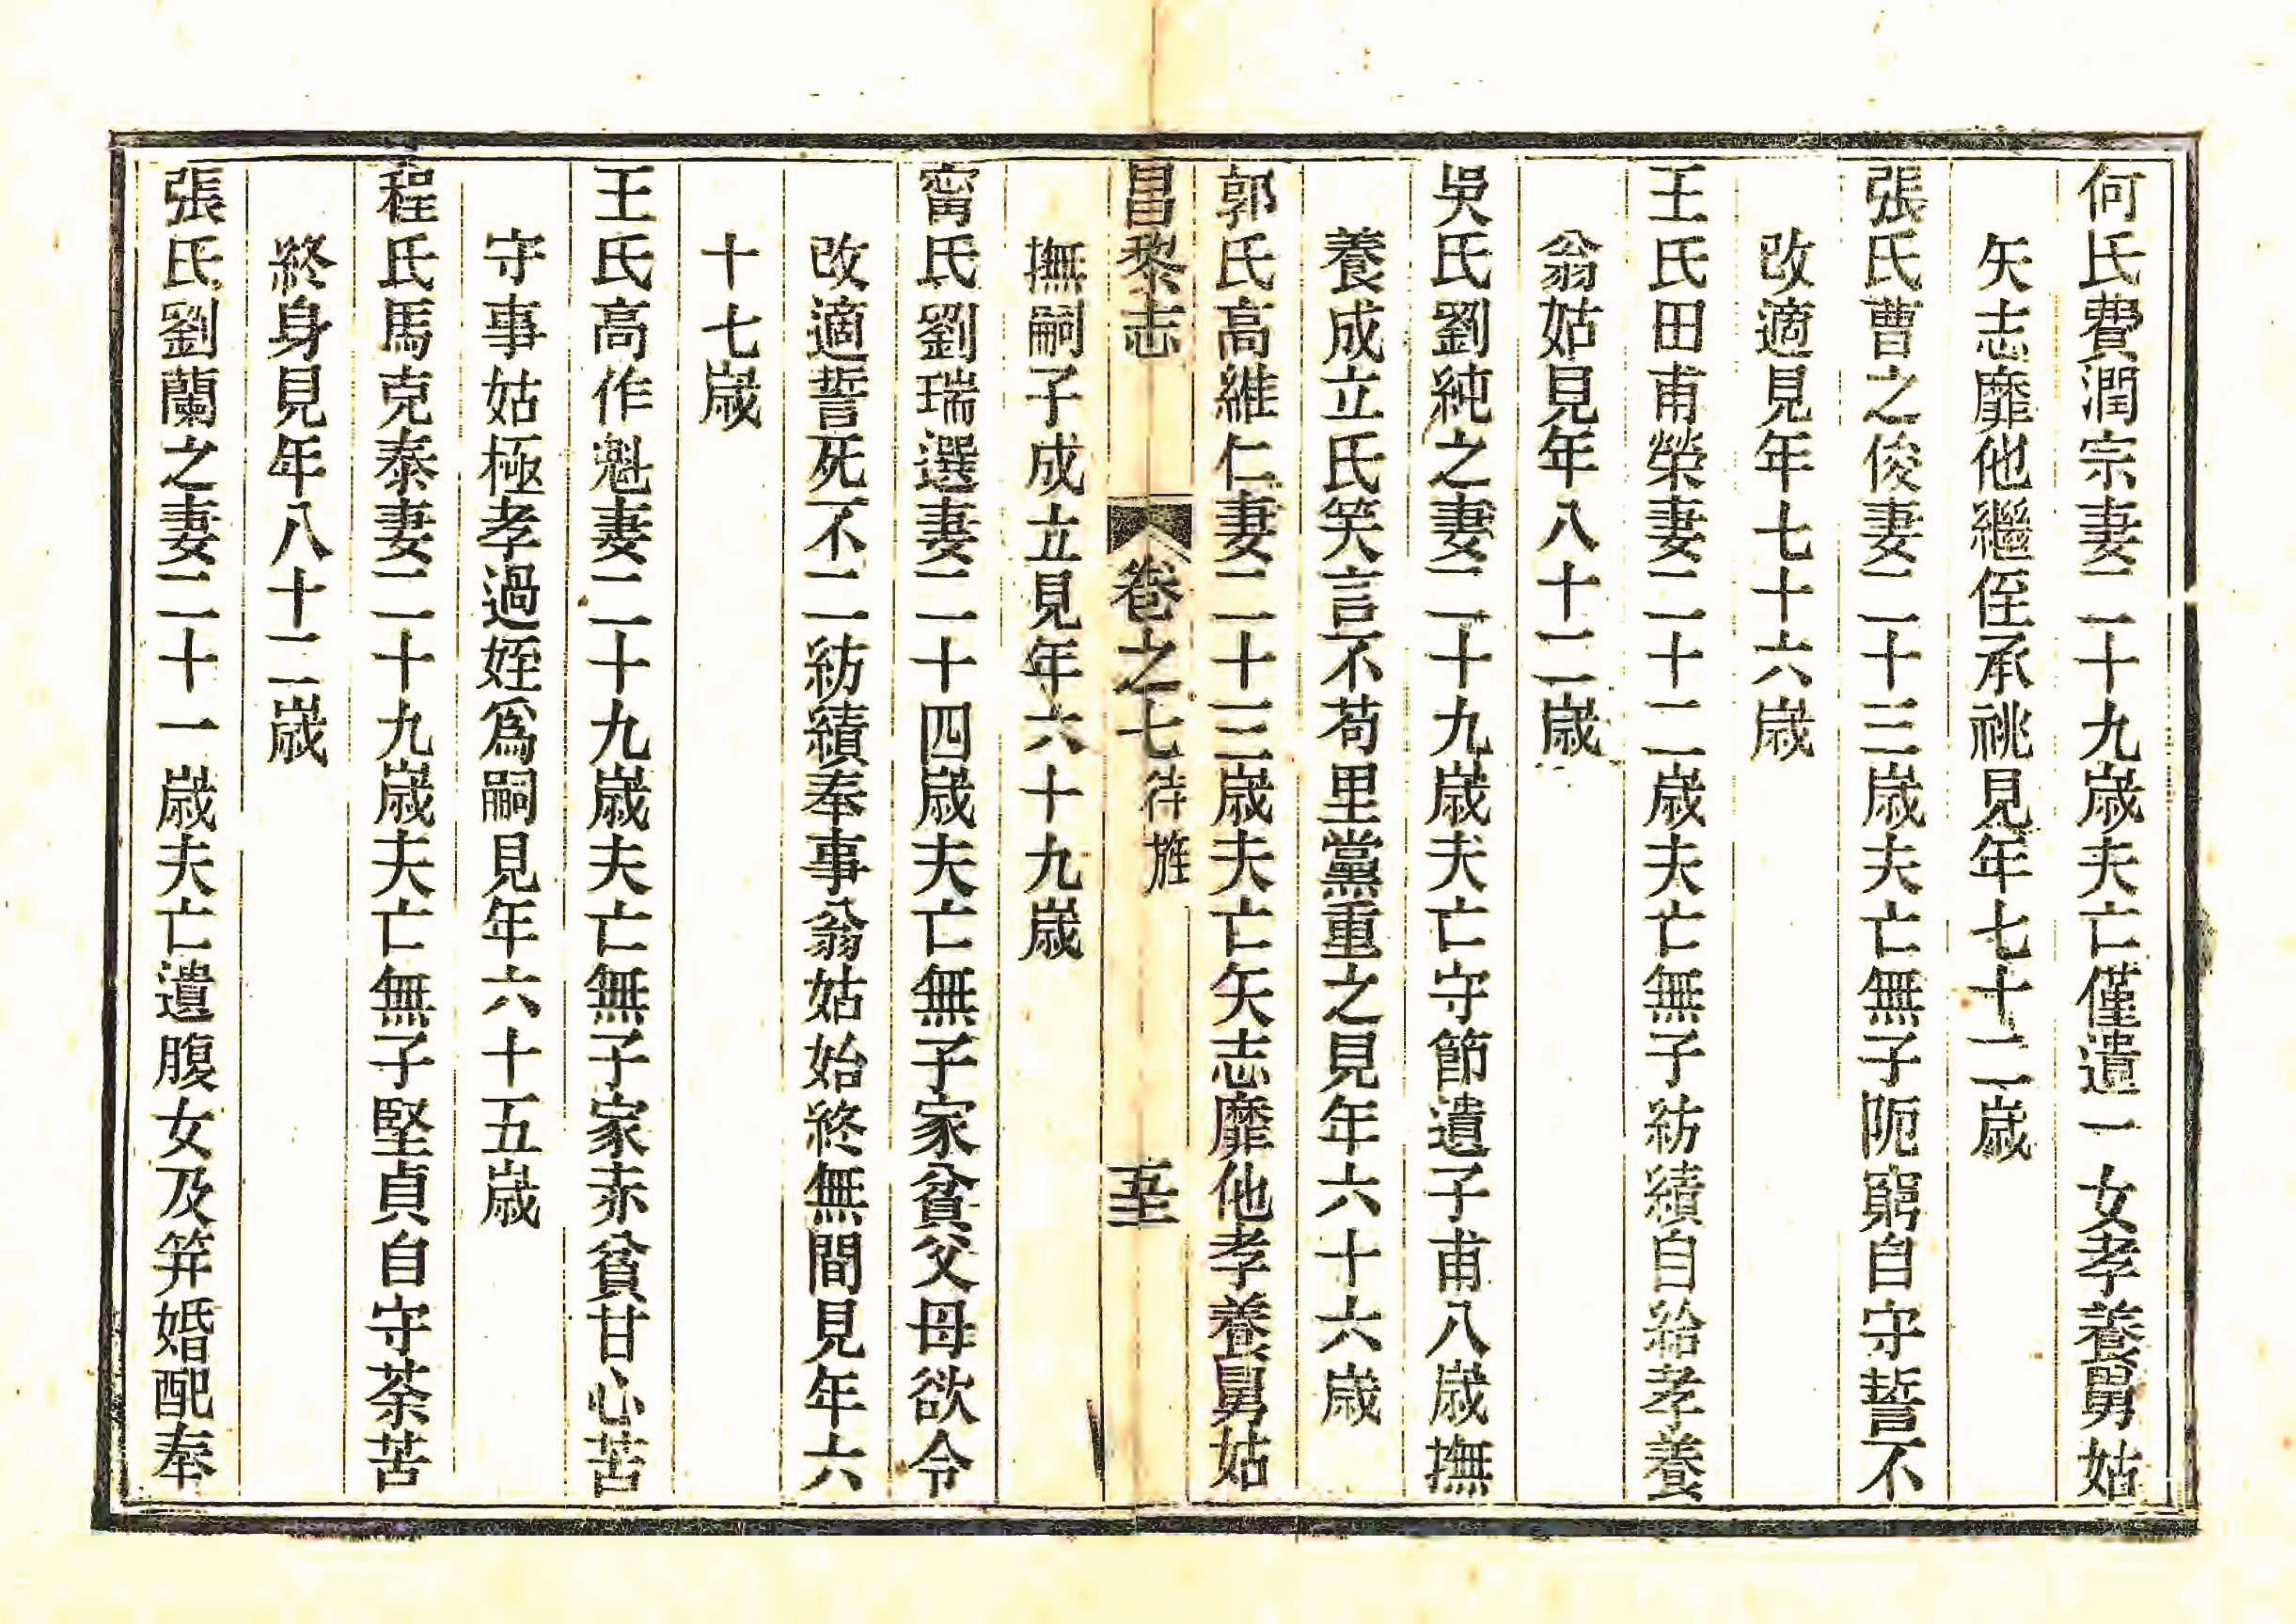 何氏費潤宗妻二十九歲夫亡僅遺一女孝養舅姑
矢志靡他繼侄承祧見年七十二歲
張氏曹之俊妻二十三歲夫亡無子阨窮自守誓不
改適見年七十六歲
王氏田甫榮妻二十二歲夫亡無子紡績自給孝養
翁姑見年八十二歲
吳氏劉純之妻二十九歲夫亡守節遺子甫八歲撫
養成立氏笑言不苟里黨重之見年六十六歲
郭氏高維仁妻二十三歲夫亡矢志靡他孝養舅姑
昌黎志 卷之七 待旌
撫嗣子成立見年六十九歲
甯氏劉瑞選妻二十四歲夫亡無子家貧父母欲令
改適誓死不二紡績奉事翁姑始終無間見年六
十七歲
王氏高作魁妻二十九歲夫亡無子家赤貧甘心苦
守事姑極孝過姪爲嗣見年六十五歲
程氏馬克泰妻二十九歲夫亡無子堅貞自守荼苦
終身見年八十二歲
張氏劉蘭之妻二十一歲夫亡遺腹女及笄婚配奉